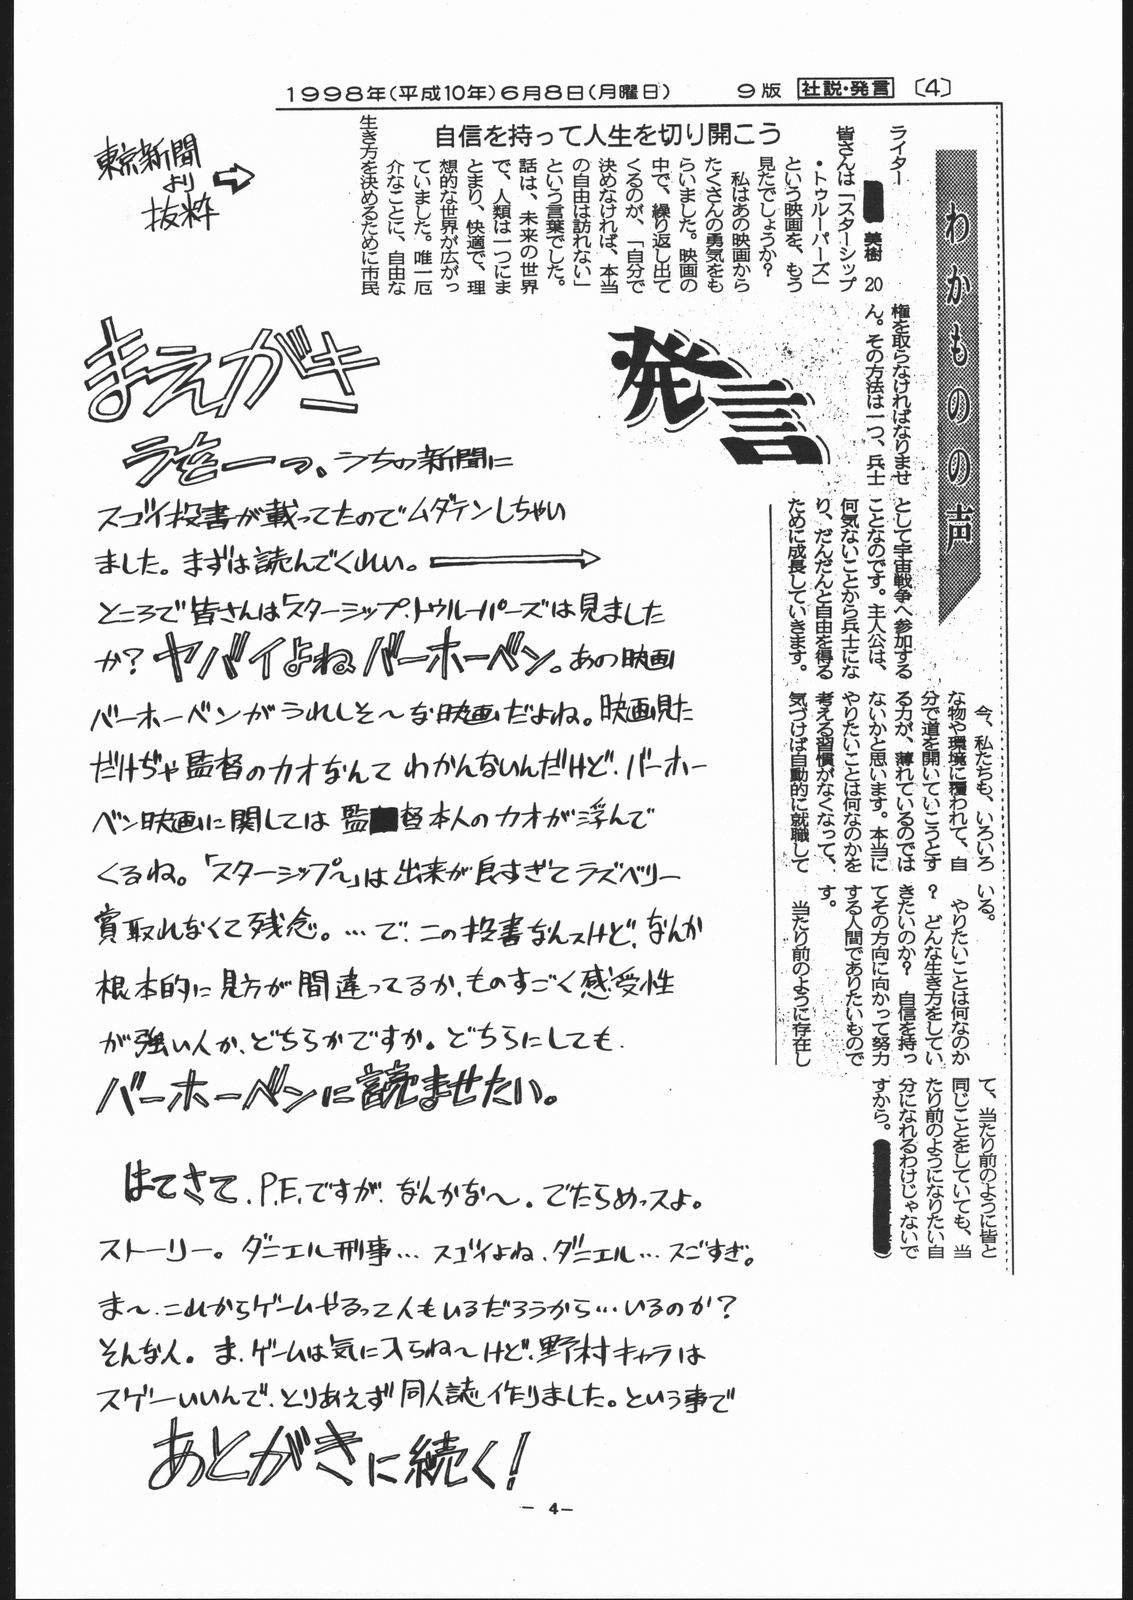 1998年(平成10年)6月8日(月曜日)　9版　社説・発言　〔4〕
東京新聞
より
抜粋
わかものの声
発言
自信を持って人生を切り開こう
ライター
美樹 20
皆さんは「スターシップ
・トゥルーパーズ」
という映画を、もう
見たでしょうか？
私はあの映画から
たくさんの勇気をも
らいました。映画の
中で、繰り返し出て
くるのが、「自分で
決めなければ、本当
の自由は訪れない」
という言葉でした。
話は、未来の世界
で、人類は一つにま
とまり、快適で、理
想的な世界が広がっ
ていました。唯一厄
介なことに、自由な
生き方を決めるために市民
権を取らなければなりませ
ん。その方法は一つ、兵士
として宇宙戦争へ参加する
ことなのです。主人公は、
何気ないことから兵士にな
り、だんだんと自由を得る
ために成長していきます。
今、私たちも、いろいろ
な物や環境に覆われて、自
分で道を開いていこうとす
る力が、薄れているのでは
ないかと思います。本当に
やりたいことは何なのかを
考える習慣がなくなって、
気づけば自動的に就職して
いる。
やりたいことは何なのか
？　どんな生き方をしてい
きたいのか？　自信を持っ
てその方向に向かって努力
する人間でありたいもので
す。
当たり前のように存在し
て、当たり前のように皆と
同じことをしていても、当
たり前のようになりたい自
分になれるわけじゃないで
すから。
まえがき
うちの新聞に
スゴイ投書が載ってたのでムダテンしちゃい
ました。まずは読んでくれい。
ところで皆さんは「スターシップ・トゥルーパーズは見ました
か？ヤバイよねバーホーベン。あの映画
バーホーベンがうれしそ〜な映画だよね。映画見た
だけぢゃ監督のカオなんてわかんないんだけど、バーホー
ベン映画に関しては監督本人のカオが浮んで
くるね。「スターシップ〜」は出来が良すぎてラズベリー
賞取れなくて残念。…で、この投書なんスけど、なんか
根本的に見方が間違ってるか、ものすごく感受性
が強い人か、どちらかですか。どちらにしても、
バーホーベンに読ませたい。
はてさて、P.E.ですが、なんかな〜。でたらめっスよ。
ストーリー。ダニエル刑事…スゴイよね、ダニエル…スごすぎ。
ま〜、これからゲームやるって人もいるだろうから…いるのか？
そんな人。ま、ゲームは気に入らね〜けど、野村キャラは
スゲーいいんで、とりあえず同人誌作りました。という事で
あとがきに続く！
- 4 -